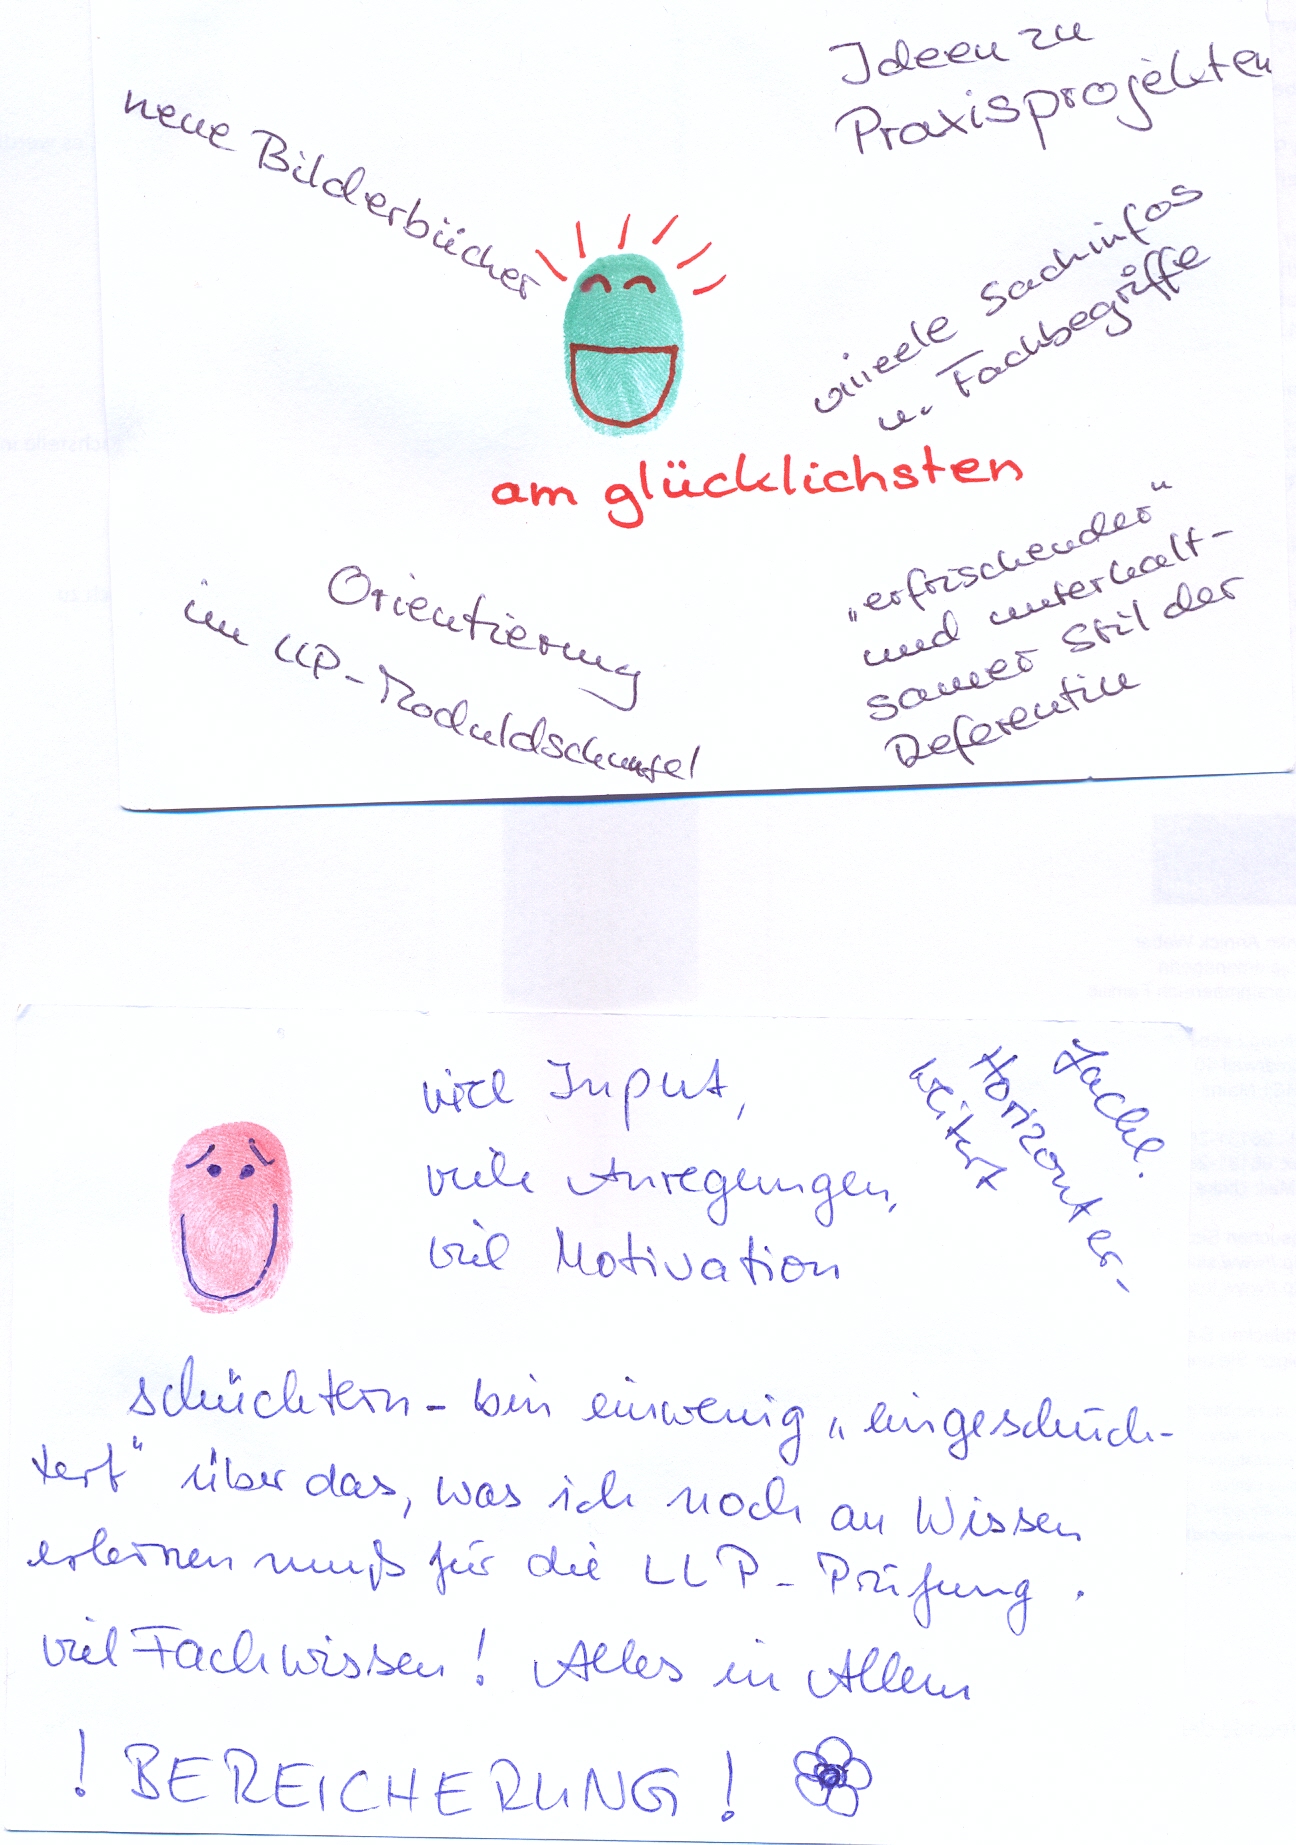 neue Bilderbücher
Ideen zu
Praxisprojekten
viieele Sachinfos
u. Fachbegriffe
am glücklichsten
Orientierung
im LLP-Moduldschungel
„erfrischender“
und unterhalt-
samer Stil der
Referentin
viel Input,
viele Anregungen,
viel Motivation
Fachl.
Horizonter-
weitert
schüchtern - bin einwenig „eingeschüch-
tert“ über das, was ich noch an Wissen
erlernen muß für die LLP - Prüfung.
viel Fachwissen! Alles in Allem
! BEREICHERUNG !